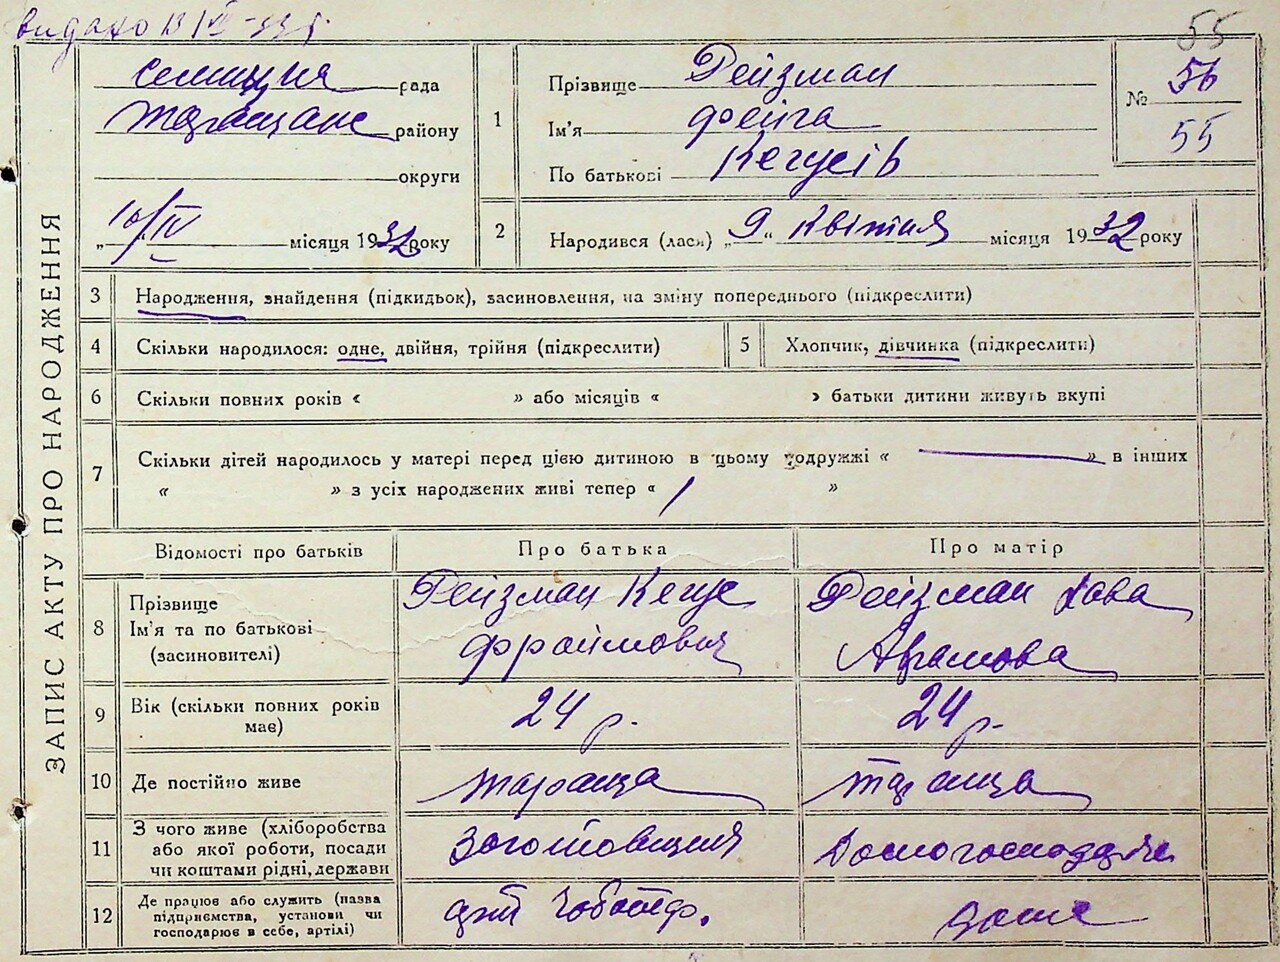 видано 13/IV-33 р.
55
ЗАПИС АКТУ ПРО НАРОДЖЕННЯ
селищна рада
Таращанс району
округи
„10/IV“ місяця 1932 року
1
Прізвище Рейзман
Ім'я Фейга
По батькові Кегусів
№ 56
55
2
Народився (лася) „9“ Квітня місяця 1932 року
3
Народження, знайдення (підкидьок), засиновлення, на зміну попереднього (підкреслити)
4
Скільки народилося: одне, двійня, трійня (підкреслити)
5
Хлопчик, дівчинка (підкреслити)
6
Скільки повних років « » або місяців « » батьки дитини живуть вкупі
7
Скільки дітей народилось у матері перед цією дитиною в цьому подружжі « — » в інших
« » з усіх народжених живі тепер « / »
Відомості про батьків
Про батька
Про матір
8
Прізвище
Ім'я та по батькові
(засиновителі)
Рейзман Кегус
Фраимович
Рейзман Хава
Абрамова
9
Вік (скільки повних років
має)
24 р.
24 р.
10
Де постійно живе
Тараща
Тараща
11
З чого живе (хліборобства
або якої роботи, посади
чи коштами рідні, держави
Заготовщик
Домогосподарка
12
Де працює або служить (назва
підприємства, установи чи
господарює в себе, артілі)
арт чоботф.
дома